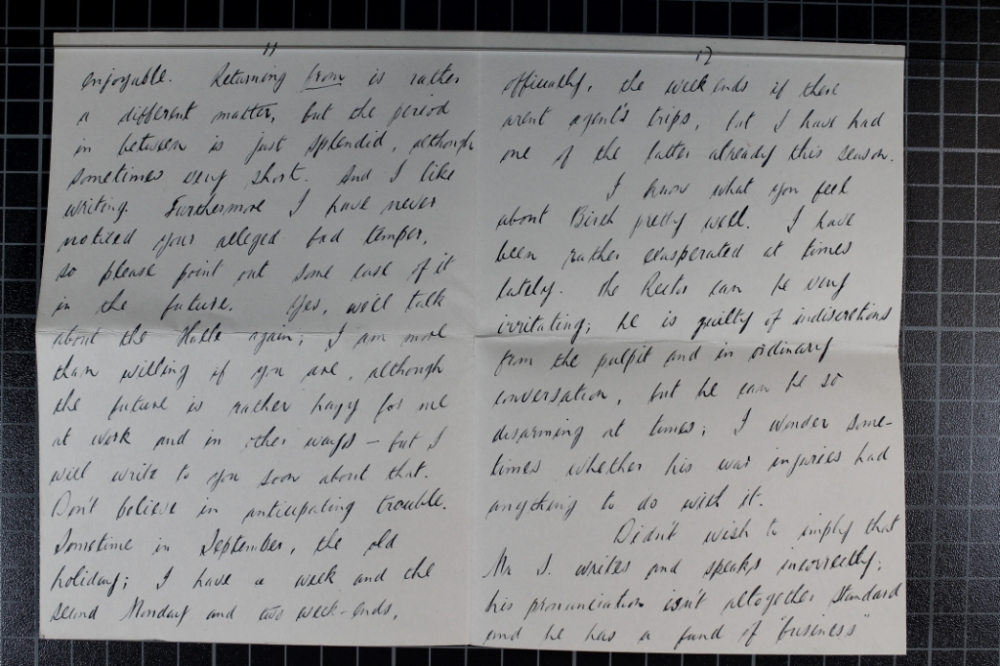 11
enjoyable. Returning from is rather
a different matter, but the period
in between is just splendid, although
sometimes very short. And I like
writing. Furthermore I have never
noticed your alleged bad temper,
so please point out some case of it
in the future. Yes, we'll talk
about the Halle again; I am more
than willing if you are, although
the future is rather hazy for me
at work and in other ways – but I
will write to you soon about that.
Don't believe in anticipating trouble.
Sometime in September, the old
holiday; I have a week and the
second Monday and two week-ends,
12
officially, the week ends if there
arent agent's trips, but I have had
one of the latter already this season.
I know what you feel
about Birch pretty well. I have
been rather exasperated at times
lately. The Rector can be very
irritating; he is guilty of indiscretions
from the pulpit and in ordinary
conversation, but he can be so
disarming at times; I wonder some-
times whether his war injuries had
anything to do with it.
Didn't wish to imply that
Mr S. writes and speaks incorrectly;
his pronunciation isn't altogether standard
and he has a fund of "business"